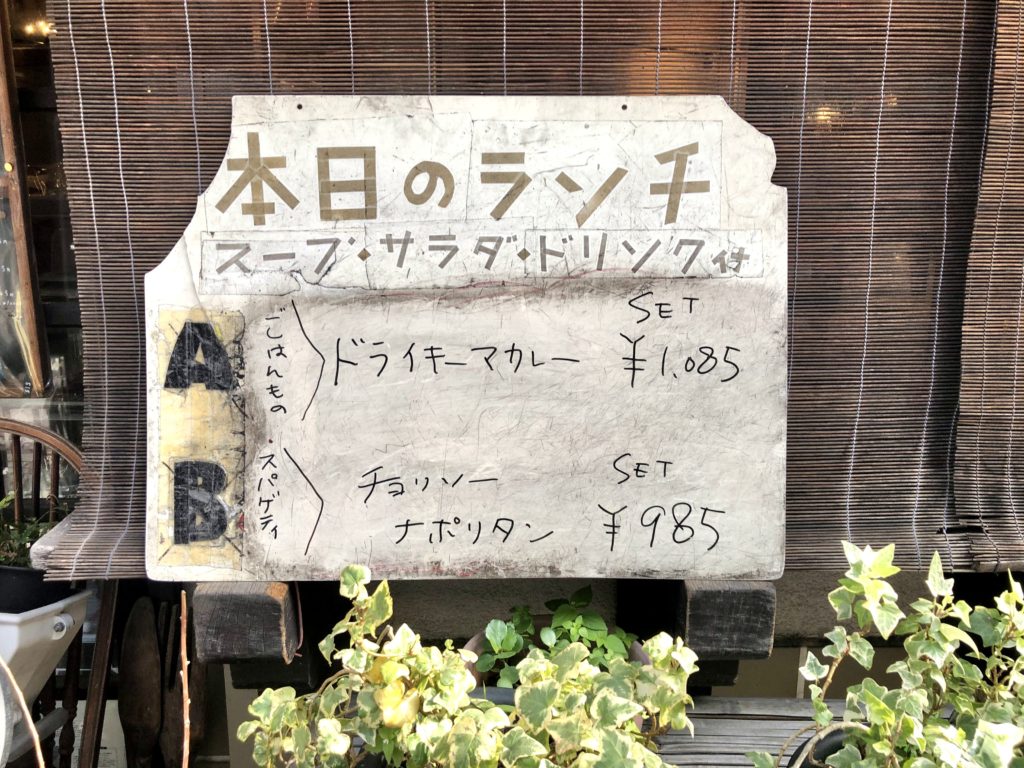 本日のランチ
スープ・サラダ・ドリンク付
A
ごはんもの
ドライキーマカレー
SET
¥1,085
B
・スパゲティ
チョリソー
ナポリタン
SET
¥985